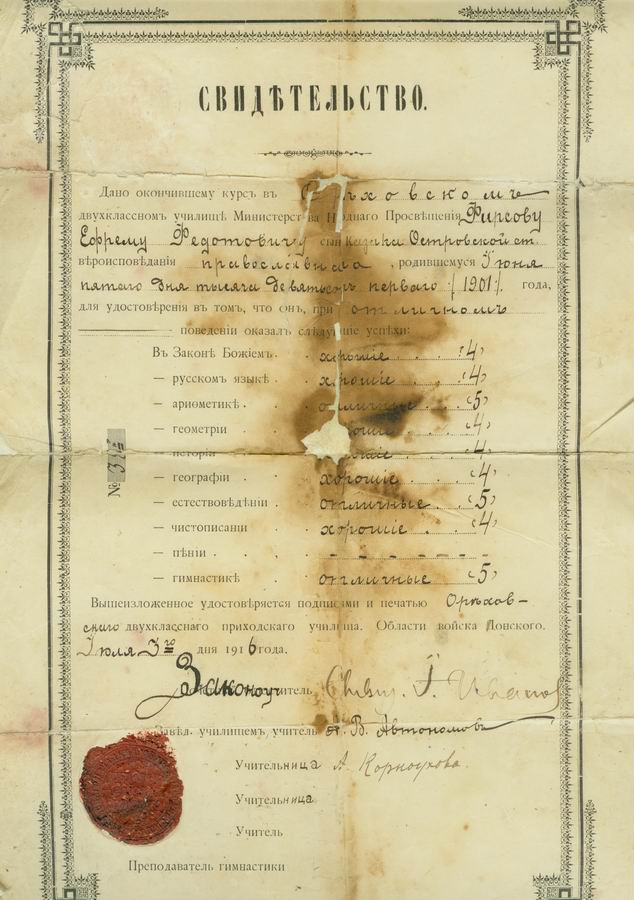 СВИДѢТЕЛЬСТВО.
Дано окончившему курсъ въ
двухклассномъ училищѣ Министерства Просвѣщенія Фирсову
Ефрему Федотовичу сын Казака Островской ст.
вѣроисповѣданія православнаго, родившемуся Iюня
пятаго дня тысяча девятьсотъ перваго (1901) года,
для удостовѣренія въ томъ, что онъ, при отличномъ
поведеніи оказалъ слѣдующіе успѣхи:
Въ Законѣ Божіемъ хорошіе (4)
— русскомъ языкѣ хорошіе (4)
— ариѳметикѣ отличные (5)
— геометріи (4)
— исторіи (4)
— географіи хорошіе (4)
— естествовѣдѣніи отличные (5)
— чистописаніи хорошіе (4)
— пѣніи - - - - - - - -
— гимнастикѣ отличные (5)
№
Вышеизложенное удостовѣряется подписями и печатью Орѣхов-
скаго двухкласснаго приходскаго училища. Области войска Донского.
Iюля 3го дня 1916 года.
Законоучитель Свящ. I. Ивановъ
Завѣд. училищемъ, учитель В. Автономовъ
Учительница А. Корноухова.
Учительница
Учитель
Преподаватель гимнастики